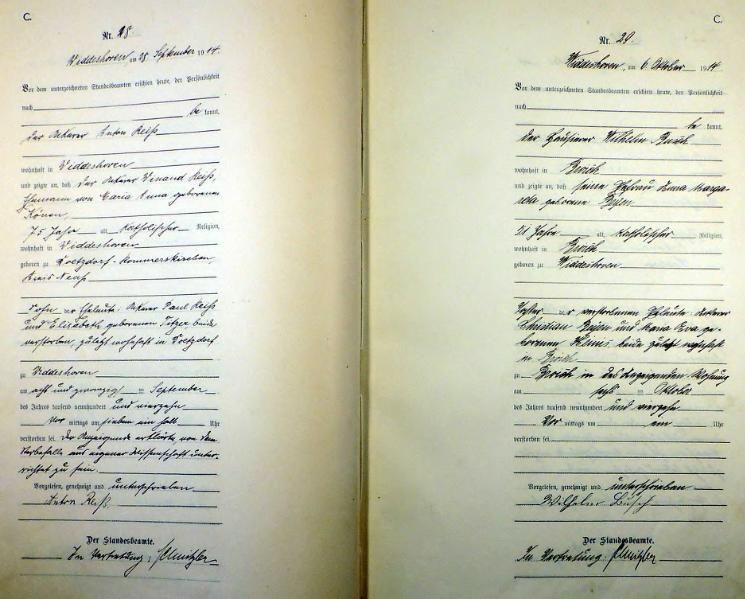 C.
Nr. 28
Widdeshoven am 28 September 1914.
Vor dem unterzeichneten Standesbeamten erschien heute, der Persönlichkeit
nach
be kannt,
der Ackerer Anton Reiß
wohnhaft in Widdeshoven
und zeigte an, daß der Ackerer Winand Reiß,
Ehemann von Maria Anna geborenen
Könen,
75 Jahre alt, Katholischer Religion,
wohnhaft in Widdeshoven
geboren zu Rommerskirchen,
Kreis Neuß
Sohn der Eheleute: Ackerer Paul Reiß
und Elisabeth geborenen beide
verstorben, zuletzt wohnhaft in
zu Widdeshoven
am acht und zwanzig ten September
des Jahres tausend neunhundert und vierzehn
Vor mittags um sieben ein halb Uhr
verstorben sei. Der Anzeigende erklärte, von dem
Sterbefalle aus eigener Wissenschaft unter-
richtet zu sein.
Vorgelesen, genehmigt und unterschrieben
Anton Reiß
Der Standesbeamte.
In Vertretung:
C.
Nr. 29
Widdeshoven, am 6. Oktober 1914
Vor dem unterzeichneten Standesbeamten erschien heute, der Persönlichkeit
nach
be kannt,
der Hausierer Wilhelm Busch
wohnhaft in
und zeigte an, daß seine Ehefrau Anna Marga-
reta geborene
Jahre alt, Katholischer Religion,
wohnhaft in
geboren zu Widdeshoven
Tochter der verstorbenen Eheleute: Ackerer
Christian und Maria Eva ge-
borenen beide zuletzt wohnhaft
in
zu in des Anzeigenden Wohnung
am sechs ten Oktober
des Jahres tausend neunhundert und vierzehn
Vor mittags um ein Uhr
verstorben sei.
Vorgelesen, genehmigt und unterschrieben
Wilhelm Busch
Der Standesbeamte.
In Vertretung: